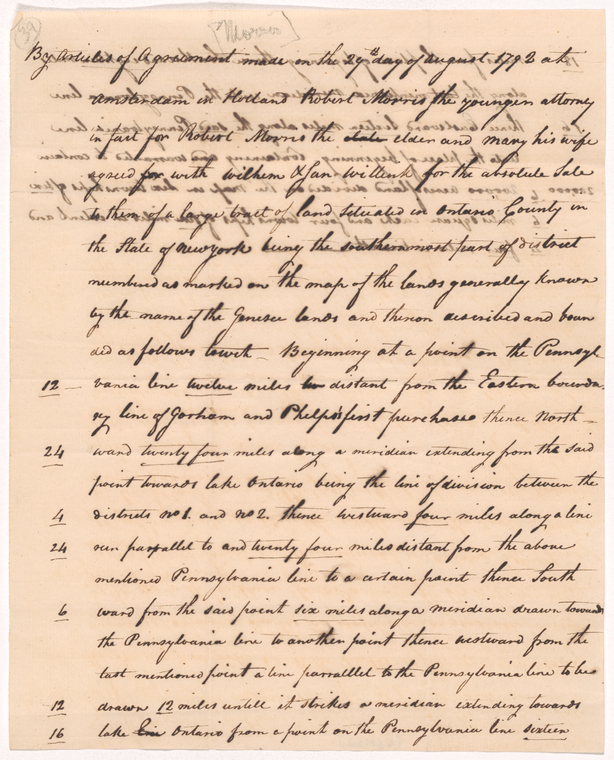 39
[Morris]
By Articles of Agreement made on the 29th day of August 1792 at
Amsterdam in Holland Robert Morris the younger attorney
in fact for Robert Morris the elder and mary his wife
agreed for with Wilhem & Jan Willink for the absolute Sale
to them of a large tract of land Situated in Ontario County in
the State of New york being the southernmost part of district
numbered as marked on the map of the lands generally known
by the name of the Genesee lands and thereon described and boun
ded as follows towit - Beginning at a point on the Pennsyl
12 - vania line twelve miles distant from the Eastern bounda
ry line of Gorham and Phelps's first purchase thence North -
24 ward twenty four miles along a meridian extending from the said
point towards lake Ontario being the line of division between the
4 districts no 1. and no 2. thence westward four miles along a line
24 run parallel to and twenty four miles distant from the above
mentioned Pennsylvania line to a certain point thence South
6 ward from the said point six miles along a meridian drawn towards
the Pennsylvania line to another point thence westward from the
last mentioned point a line parrallel to the Pennsylvania line to be
12 drawn 12 miles untill it strikes a meridian extending towards
16 lake Erie Ontario from a point on the Pennsylvania line sixteen